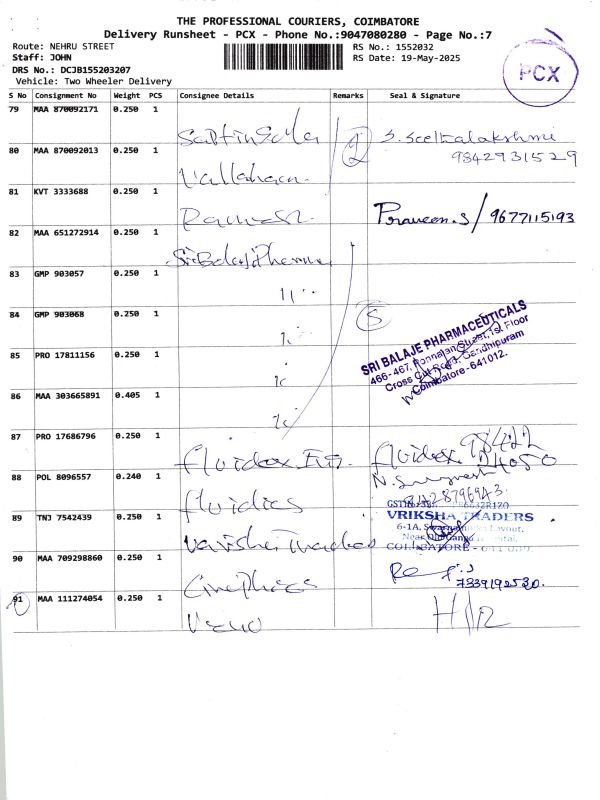 THE PROFESSIONAL COURIERS, COIMBATORE
Delivery Runsheet - PCX - Phone No.:9047080280 - Page No.:7
Route: NEHRU STREET
Staff: JOHN
DRS No.: DCJB155203207
Vehicle: Two Wheeler Delivery
RS No.: 1552032
RS Date: 19-May-2025
PCX
S No Consignment No Weight PCS Consignee Details Remarks Seal & Signature
79 MAA 870092171 0.250 1
S. Seethalakshmi
80 MAA 870092013 0.250 1
9842931529
81 KVT 3333688 0.250 1
Ramesh Praveen.S/9677115193
82 MAA 651272914 0.250 1
Sri Balaji Pharma
83 GMP 903057 0.250 1
84 GMP 903068 0.250 1
5
SRI BALAJE PHARMACEUTICALS
466-467, Ponnaian Street, 1st Floor
Cross Cut Road, Gandhipuram
Coimbatore-641012.
85 PRO 17811156 0.250 1
86 MAA 303665891 0.405 1
87 PRO 17686796 0.250 1
fluidex
88 POL 8096557 0.240 1
fluidics
89 TNJ 7542439 0.250 1
VRIKSHA TRADERS
90 MAA 709298860 0.250 1
7339192520.
91 MAA 111274054 0.250 1